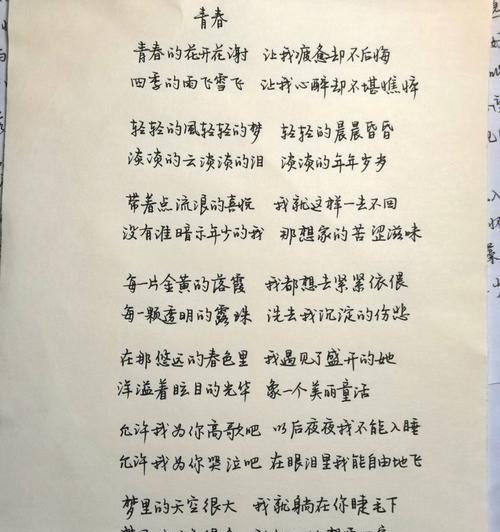 青春
青春的花开花谢 让我疲惫却不后悔
四季的雨飞雪飞 让我心醉却不堪憔悴
轻轻的風轻轻的梦 轻轻的晨晨昏昏
淡淡的云淡淡的泪 淡淡的年年岁岁
带着点流浪的喜悦 我就这样一去不回
没有谁暗示年少的我 那想家的苦涩滋味
每一片金黄的落霞 我都想去紧紧依偎
每一颗透明的露珠 洗去我沉淀的伤悲
在那悠远的春色里 我遇见了盛开的她
洋溢着眩目的光华 象一个美丽童话
允许我为你高歌吧 以后夜夜我不能入睡
允许我为你哭泣吧 在眼泪里我能自由地飞
梦里的天空很大 我就躺在你睫毛下